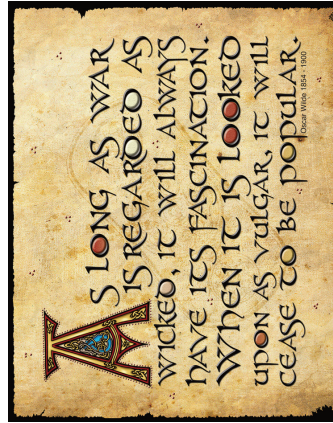 AS LONG AS WAR
IS REGARDED AS
WICKED, IT WILL ALWAYS
HAVE ITS FASCINATION.
WHEN IT IS LOOKED
UPON AS VULGAR, IT WILL
CEASE TO BE POPULAR.
Oscar Wilde 1854 - 1900